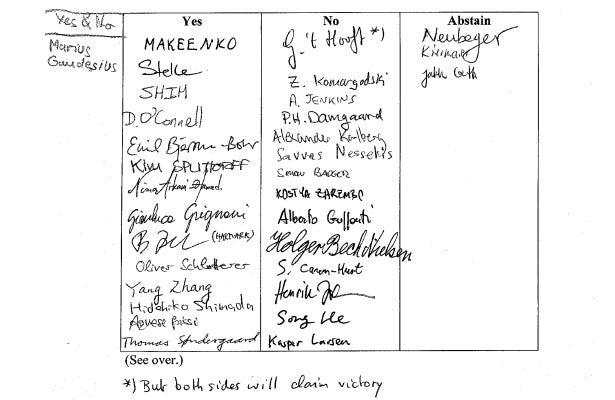 Yes & No
Marius
Yes No Abstain
MAKEENKO G. 't Hooft *) Neuberger
Stelle
SHIM Z. Komargodski
A. JENKINS
D. O'Connell P.H. Damgaard
Emil Bjerrum-Bohr Alexander
KIM SPLITTORFF Savvas
Nima Arkani-Hamed Simon BADGER
KOSTYA ZAREMBO
Gianluca Grignani Alberto Guffanti
(HARMARK) Holger Bech Nielsen
Oliver Schlotterer S. Caron-Huot
Yang Zhang Henrik
Hidehiko Shimada
Song He
Thomas Søndergaard Kasper Larsen
(See over.)
*) But both sides will claim victory